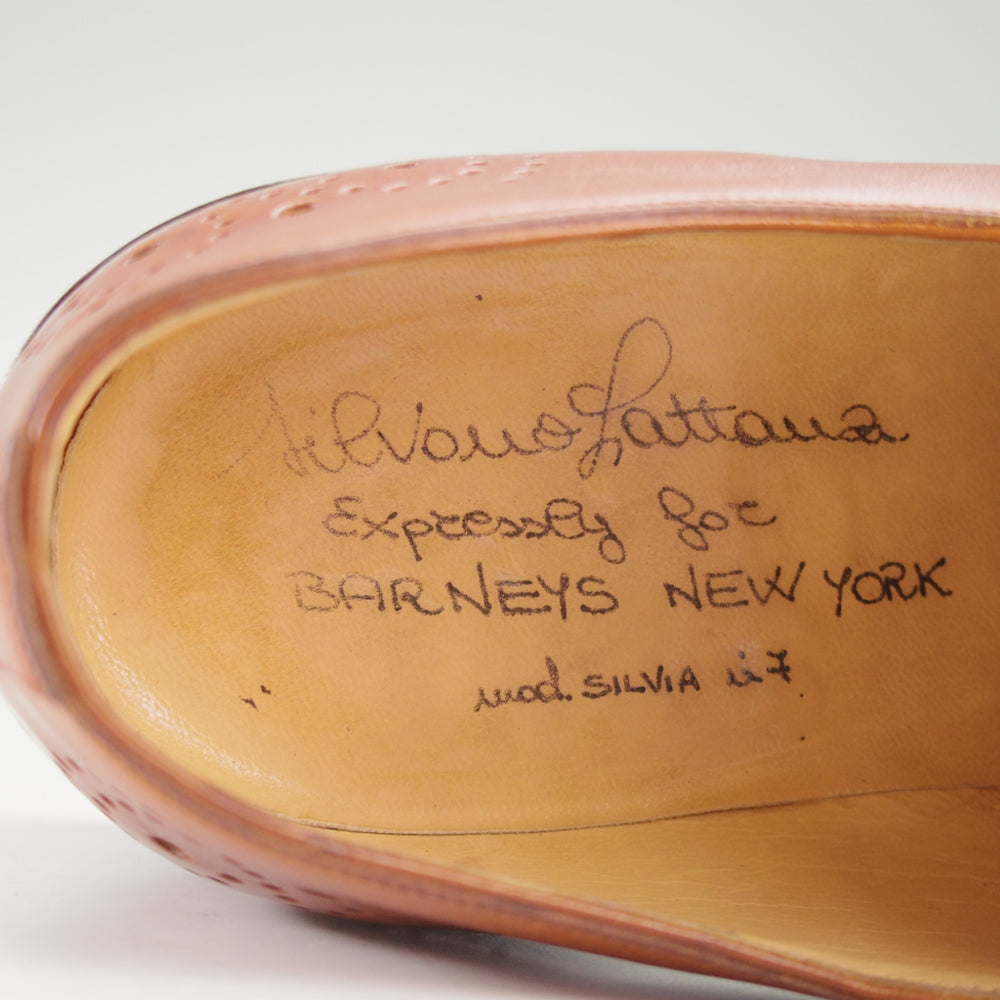 Silvano Lattanzi
Expressly for
BARNEYS NEW YORK
mod. SILVIA n 7